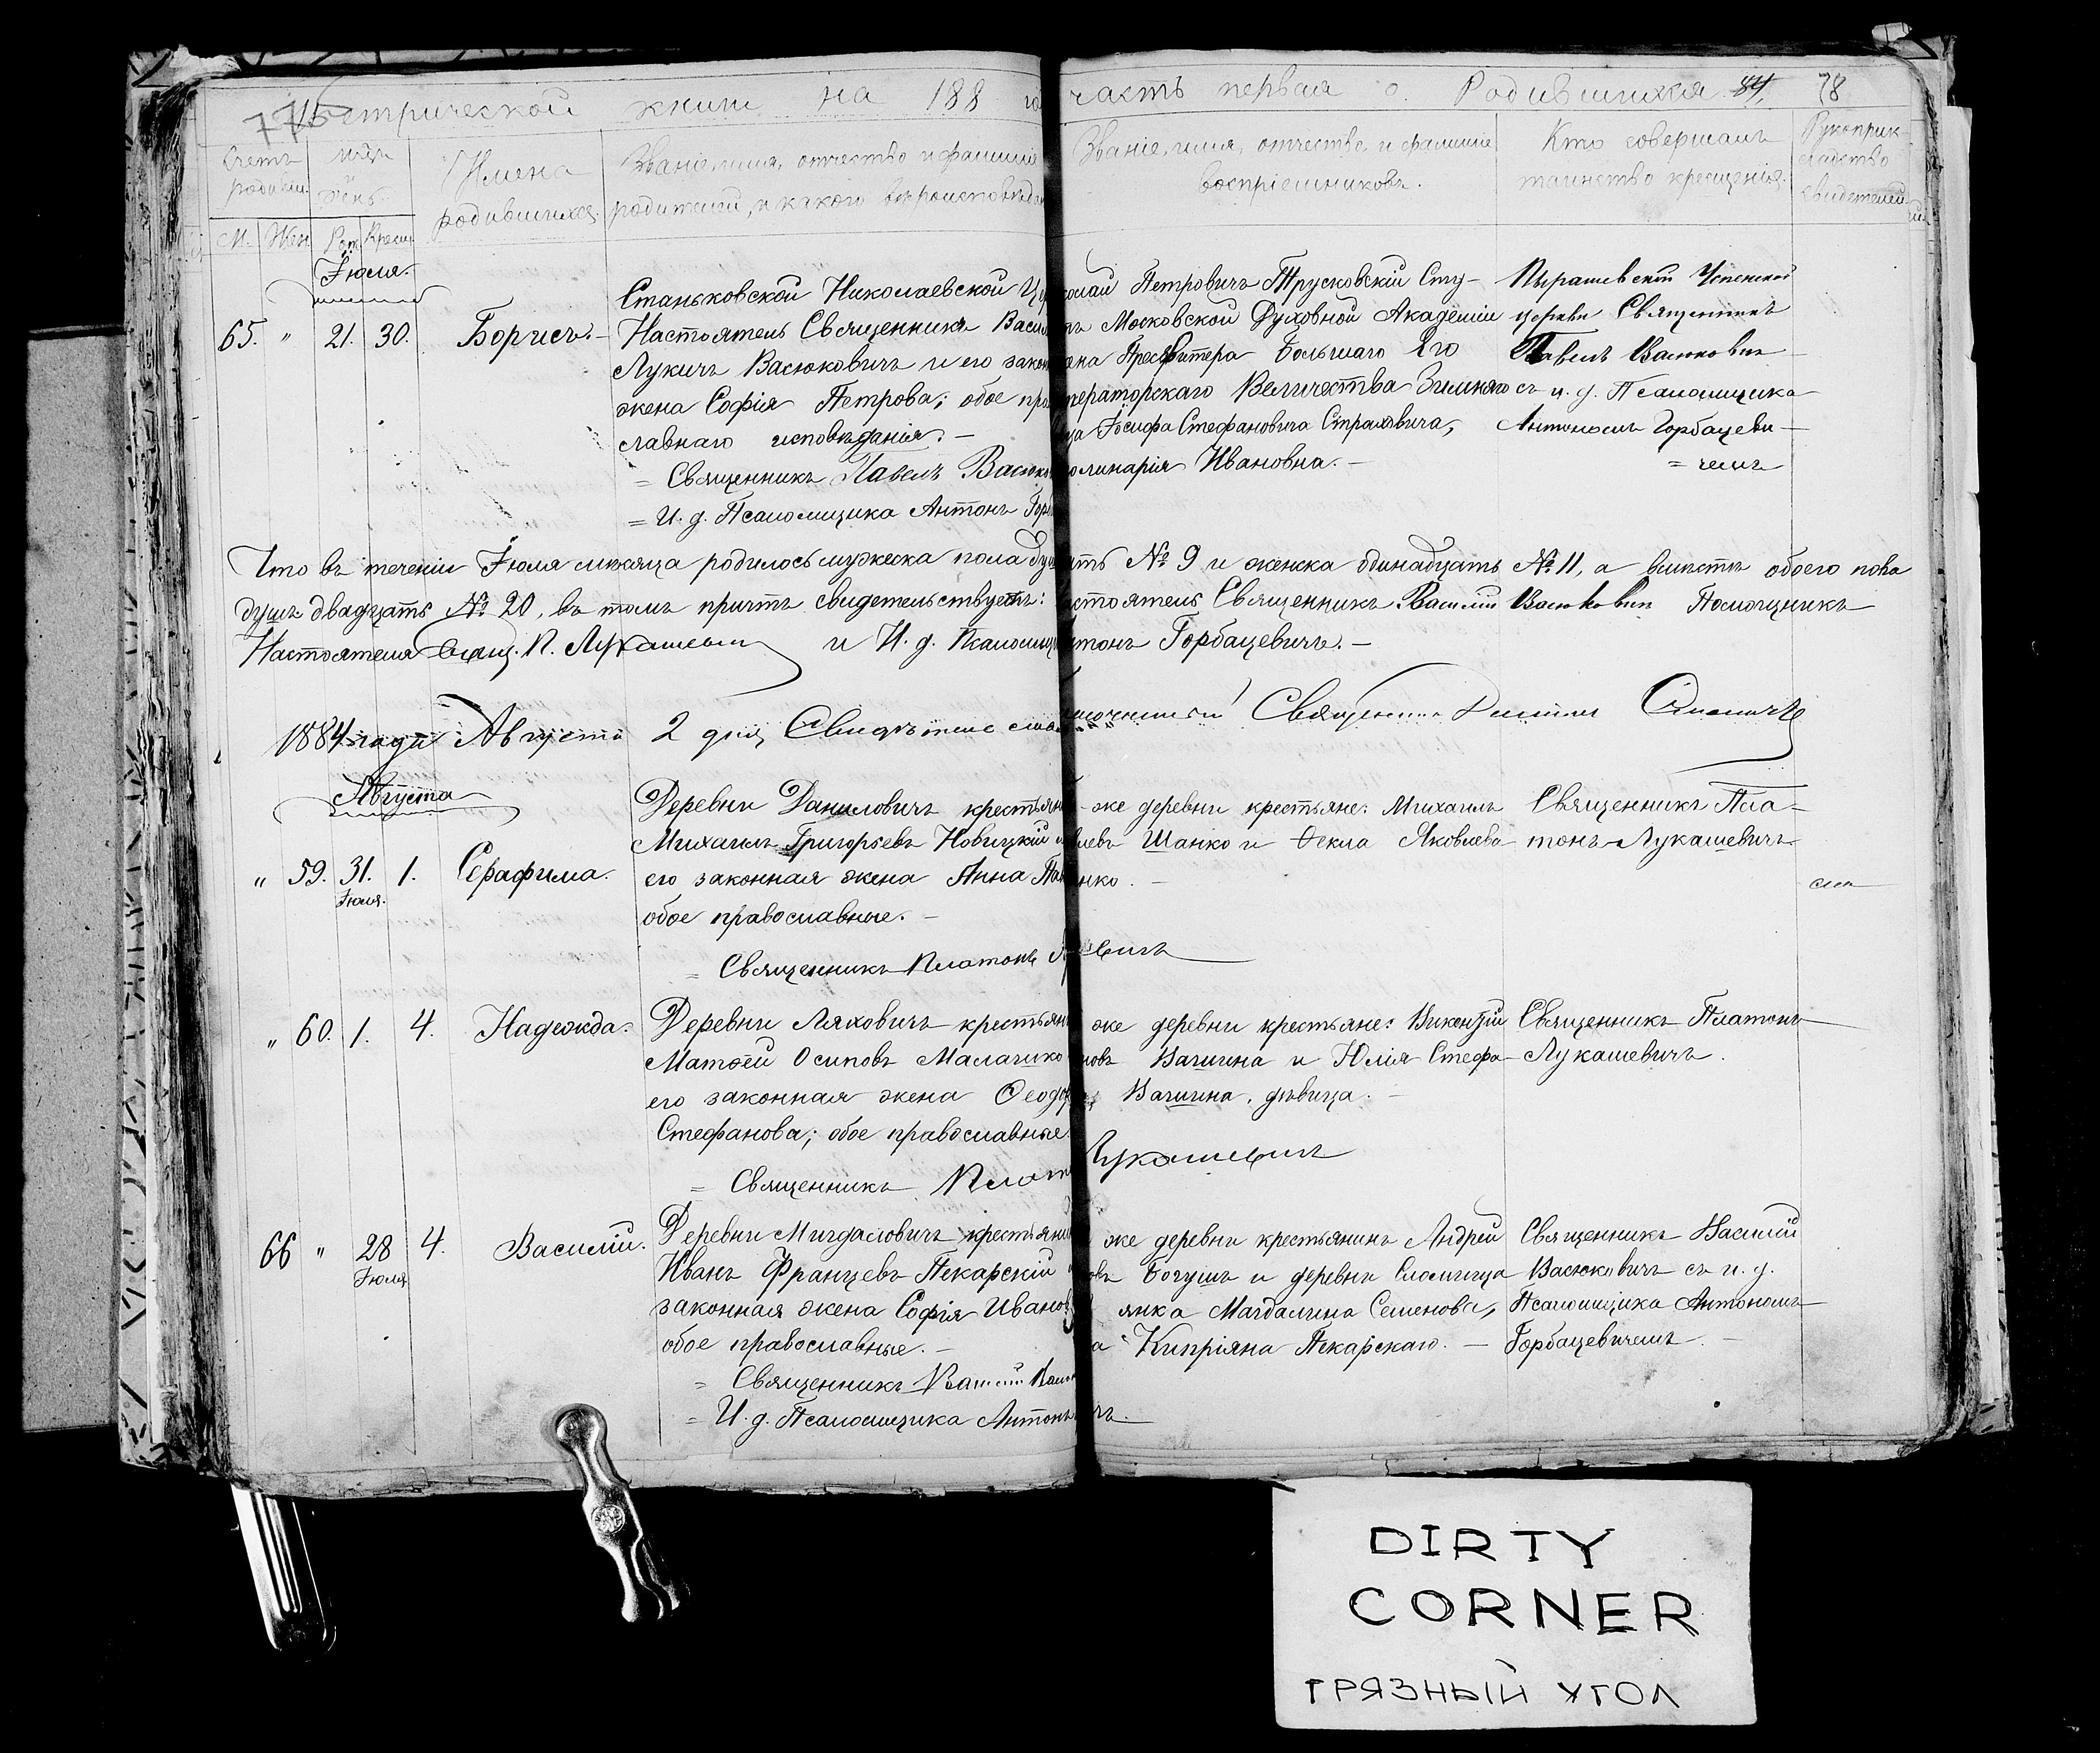 Метрической книги на 188 го
часть первая о Родившихся. 84. 78
Счетъ родивши.
М. Жен
мѣся. и день.
Рож Крещ
Имена родившихся.
Званіе, имя, отчество и фамилія
родителей, и какого вѣроисповѣда
Званіе, имя, отчество, и фамилія
воспріемниковъ.
Кто совершалъ
таинство крещенія.
Рукоприк-
ладство
свидетелей
Іюля.
65. " 21. 30. Борисъ.
Станьковской Николаевской Цер
Настоятель Священникъ Васил
Лукичъ Васюковичъ и его закон
жена Софія Петрова; обое пра
славнаго исповѣданія. –
= Священникъ Павелъ Васюк
= И. д. Псаломщика Антонъ Горб
колай Петровичъ Трусковскій Сту-
тъ Московской Духовной Академіи
ена Пресвитера Большаго Его
ператорскаго Величества Зимняго
ца Іосифа Стефановича Страховича,
олинарія Ивановна. –
Успенской
церкви Священникъ
Павелъ Васюковичъ
съ и. д. Псаломщика
Антономъ Горбацеви-
= чемъ
Что въ теченіи Іюля мѣсяца родилось мужеска пола душ ять № 9 и женска одинадцать № 11, а вмѣстѣ обоего пола
душъ двадцать № 20, въ томъ причтъ свидетельствуетъ: астоятель Священникъ Василій Васюковичъ Помощникъ
Настоятеля Свящ. П. Лукашевичъ и И. д. Псаломщ нтонъ Горбацевичъ. –
1884 года Августа 2 дня Священникъ
Августа
" 59. 31. 1. Серафима.
Іюля.
Деревни Даниловичъ крестьян
Михаилъ Григорьевъ Новицкій и
его законная жена Анна Па
обое православные. –
= Священникъ Платонъ евичъ
- же деревни крестьяне: Михаилъ
лаевъ Шанко и Ѳекла Яковлева
нко. –
Священникъ Пла-
тонъ Лукашевичъ
" 60. 1. 4. Надежда.
Деревни Ляховичъ крестьян
Матѳей Осиповъ Малашко
его законная жена Ѳеодо
Стефанова; обое православные.
= Священникъ Плато Лукашевичъ
же деревни крестьяне: Викентій
новъ Вашина и Юлія Стефа-
Вашина, дѣвица. –
Священникъ Платонъ
Лукашевичъ.
66 " 28 4. Василій.
Іюля
Деревни Мигдаловичъ крестьяни
Иванъ Францевъ Пекарскій и
законная жена Софія Иванов
обое православные. –
= Священникъ Василій Васю
= И. д. Псаломщика Антонъ чъ.
же деревни крестьянинъ Андрей
овъ Богушъ и деревни Сломгица
янка Магдалина Семенова,
а Кипріяна Пекарскаго. –
Священникъ Василій
Васюковичъ съ и. д.
Псаломщика Антономъ
Горбацевичемъ. –
DIRTY
CORNER
ГРЯЗНЫЙ УГОЛ